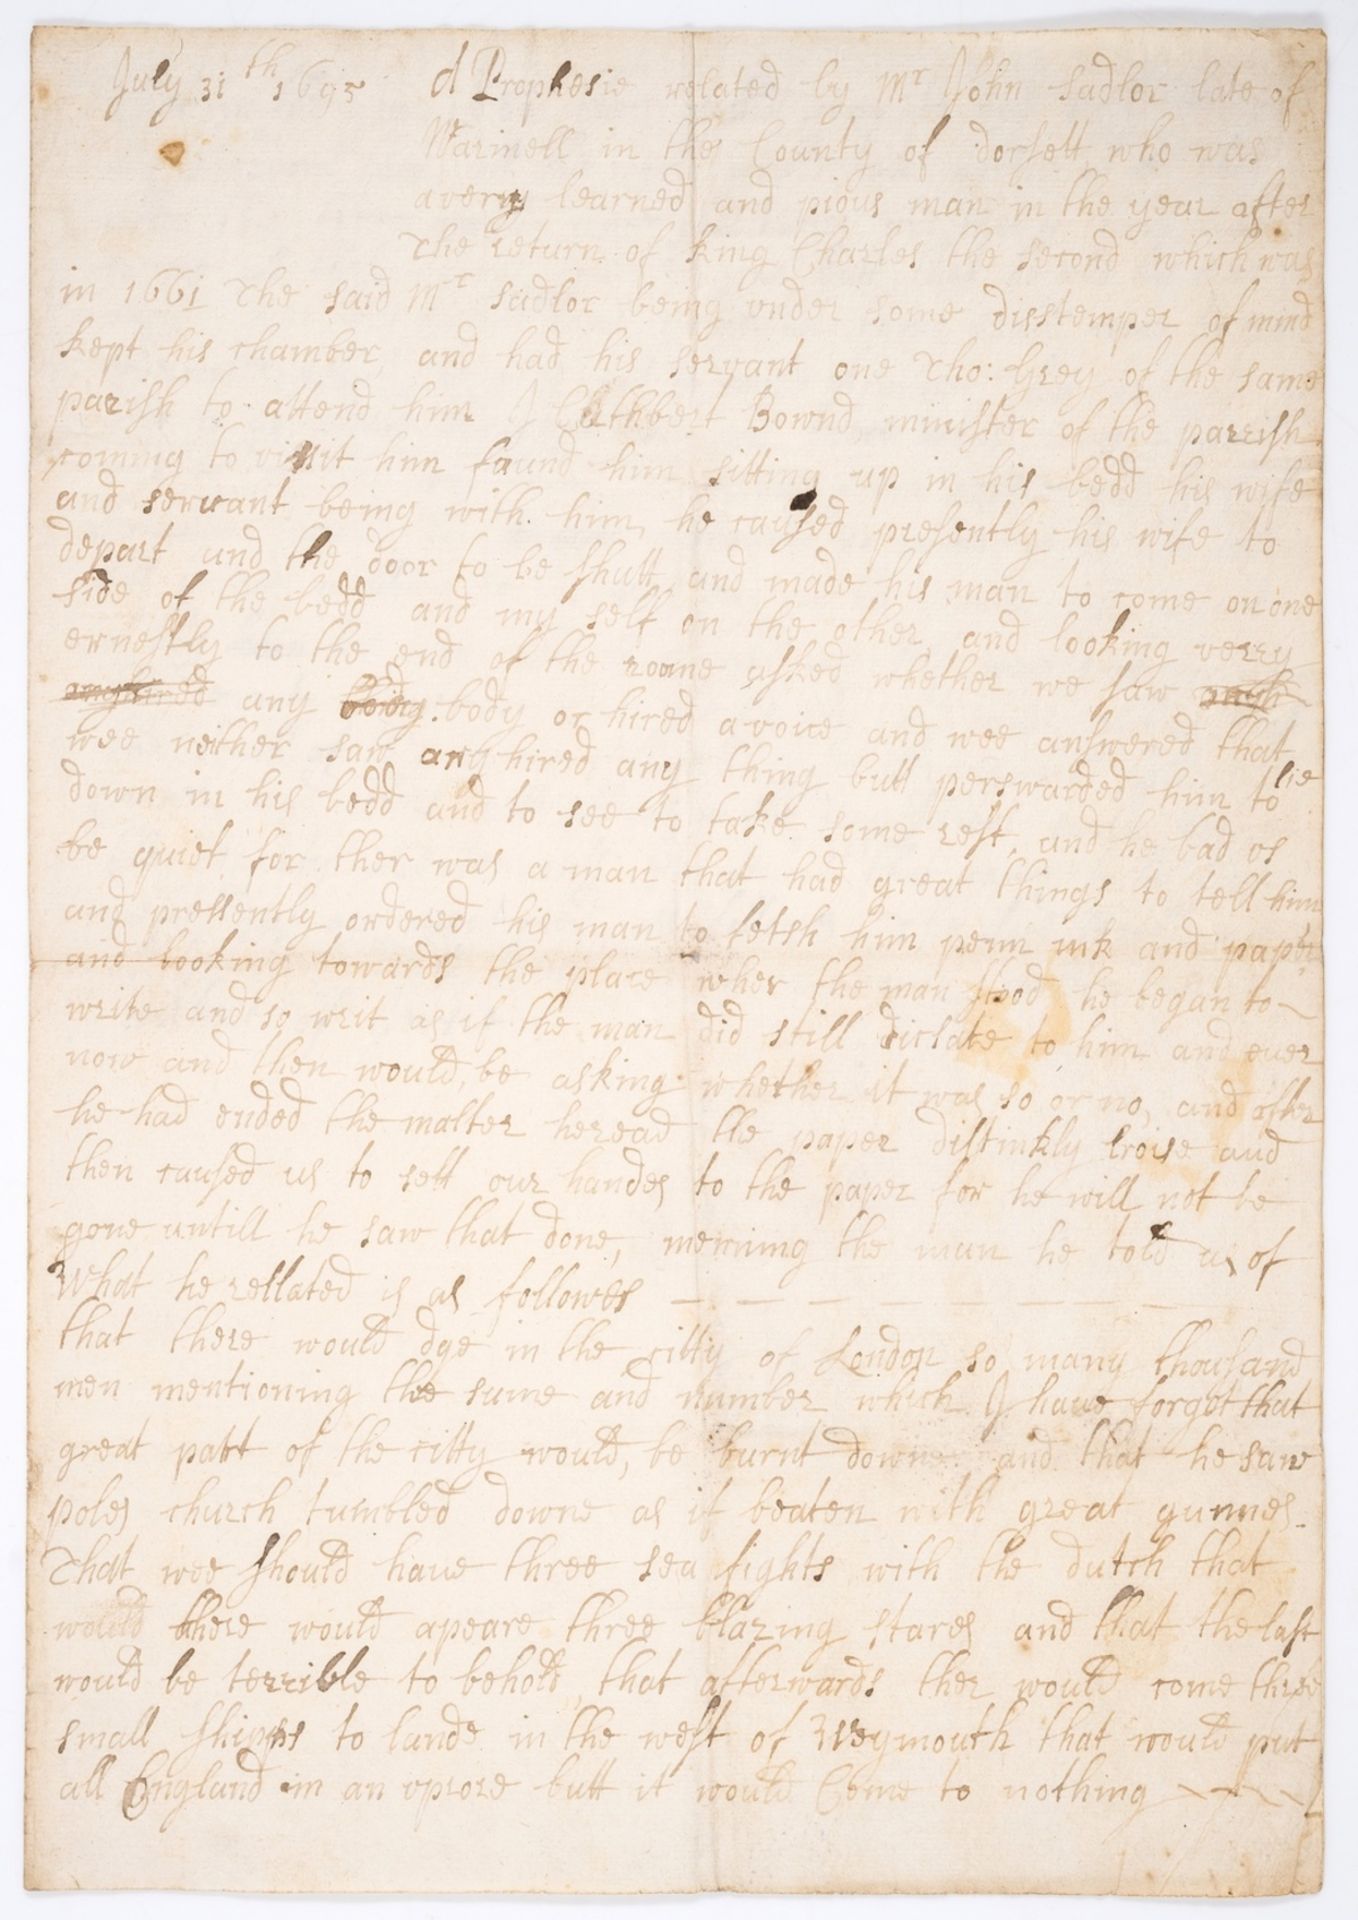 July 31th 1695 A Prophesie related by Mr John Sadlor late of
Warmell in the County of dorsett who was
a very learned and pious man in the year after
The return of king Charles the second which was
in 1661 The said Mr Sadlor being under some disstemper of mind
kept his chamber, and had his servant one Tho: Grey of the same
parish to attend him I Cuthbert Bownd, minister of the parrish
coming to visit him found him sitting up in his bedd his wife
and servant being with him, he caused presently his wife to
depart and the door to be shutt and made his man to come on one
side of the bedd and my self on the other, and looking verry
ernestly to the end of the roome asked whether we saw
any body or hired a voice and wee answered that
wee neither saw any hired any thing butt perswarded him to lie
down in his bedd and to see to take some rest, and he bad os
be quiet for ther was a man that had great things to tell him
and pressently ordered his man to fetsh him penn ink and paper
and looking towards the place wher the man stood he began to
write and so writ as if the man did still dictate to him and ever
now and then would, be asking whether it was so or no, and after
he had ended the matter heread the paper distinkly twise and
then caused us to sett our handes to the paper for he will not be
gone untill he saw that done, mening the man he told us of
What he rellated is as followes — — — — — — — —
that there would dye in the citty of London so many thousand
men mentioning the sume and number which I have forgot that
great part of the citty would, be burnt downe and that he saw
poles church tumbled downe as if beaten with great gunnes.
That wee should have three sea fights with the dutch that
would there would apeare three blazing stares and that the last
would be terrible to behold, that afterwards ther would come three
small shipps to lande in the west of Weymouth that would put
all England in an uprore butt it would Come to nothing